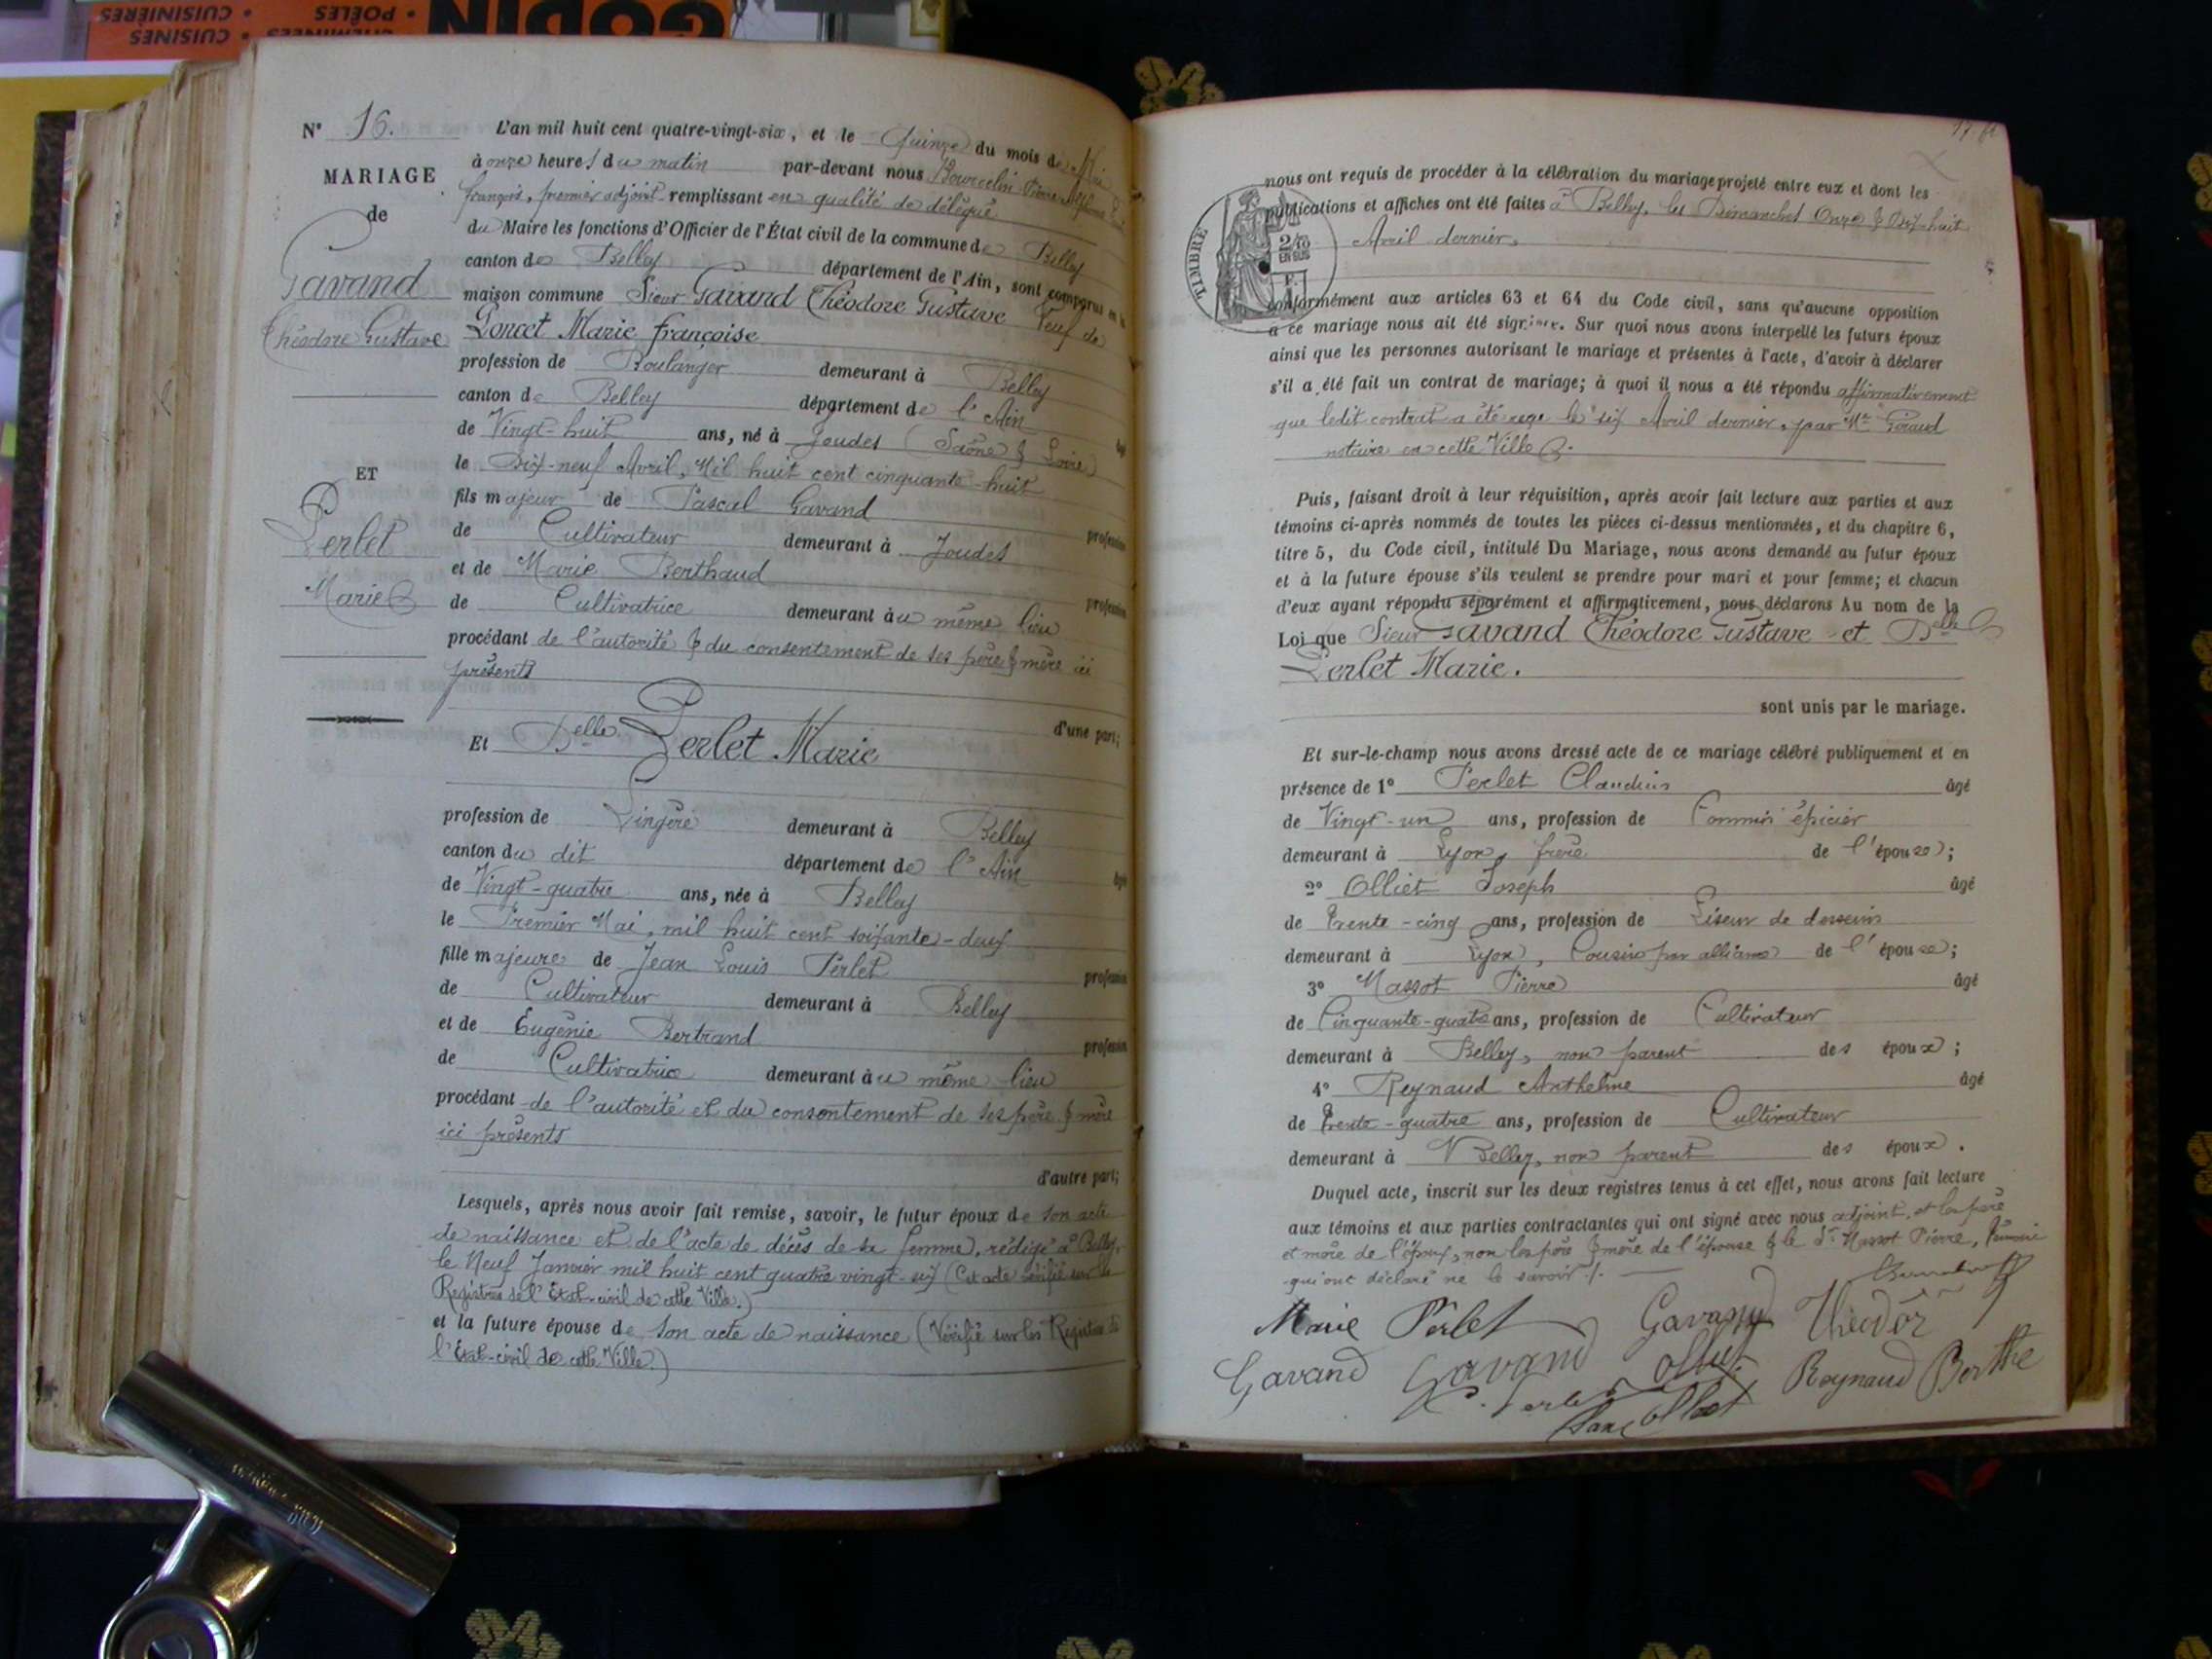 GODIN
CHEMINÉES • CUISINES
POÊLES • CUISINIÈRES
N° 16.
MARIAGE
de
Gavand
Théodore Gustave
ET
Perlet
Marie
L'an mil huit cent quatre-vingt-six, et le Quinze du mois de Mai
à onze heures du matin par-devant nous Bourcelin Pierre Alphonse
françois, premier adjoint remplissant en qualité de délégué
du Maire les fonctions d'Officier de l'État civil de la commune de Belley
canton de Belley département de l'Ain, sont comparus en la
maison commune Sieur Gavand Théodore Gustave Veuf de
Poncet Marie françoise
profession de Boulanger demeurant à Belley
canton de Belley département de l'Ain
âgé
de Vingt-huit ans, né à Joudes (Saône & Loire)
le Dix-neuf Avril, Mil huit cent cinquante-huit
fils majeur de Pascal Gavand
profession
de Cultivateur demeurant à Joudes
et de Marie Berthaud
profession
de Cultivatrice demeurant au même lieu
procédant de l'autorité & du consentement de ses père & mère ici
présents
d'une part;
Et Delle Perlet Marie
profession de Lingère demeurant à Belley
canton du dit département de l'Ain
âgé
de Vingt-quatre ans, née à Belley
le Premier Mai, mil huit cent soixante-deux
fille majeure de Jean Louis Perlet
profession
de Cultivateur demeurant à Belley
et de Eugénie Bertrand
profession
de Cultivatrice demeurant au même lieu
procédant de l'autorité et du consentement de ses père & mère
ici présents
d'autre part;
Lesquels, après nous avoir fait remise, savoir, le futur époux de son acte
de naissance et de l'acte de décès de sa femme, rédigé à Belley,
le Neuf Janvier mil huit cent quatre vingt-six (Cet acte vérifié sur les
Registres de l'État-civil de cette Ville.)
et la future épouse de son acte de naissance (Vérifié sur les Registres de
l'État-civil de cette Ville.)
TIMBRE
2/10
EN SUS
nous ont requis de procéder à la célébration du mariage projeté entre eux et dont les
publications et affiches ont été faites à Belley, les Dimanches Onze & Dix-huit
Avril dernier,
conformément aux articles 63 et 64 du Code civil, sans qu'aucune opposition
à ce mariage nous ait été signifiée. Sur quoi nous avons interpellé les futurs époux
ainsi que les personnes autorisant le mariage et présentes à l'acte, d'avoir à déclarer
s'il a été fait un contrat de mariage; à quoi il nous a été répondu affirmativement
que ledit contrat a été reçu le six Avril dernier, par Me Giraud
notaire en cette Ville.
Puis, faisant droit à leur réquisition, après avoir fait lecture aux parties et aux
témoins ci-après nommés de toutes les pièces ci-dessus mentionnées, et du chapitre 6,
titre 5, du Code civil, intitulé Du Mariage, nous avons demandé au futur époux
et à la future épouse s'ils veulent se prendre pour mari et pour femme; et chacun
d'eux ayant répondu séparément et affirmativement, nous déclarons Au nom de la
Loi que Sieur Gavand Théodore Gustave et Delle
Perlet Marie.
sont unis par le mariage.
Et sur-le-champ nous avons dressé acte de ce mariage célébré publiquement et en
présence de 1° Perlet Claudius âgé
de Vingt-un ans, profession de Commis épicier
demeurant à Lyon, frère de l'épouse;
2° Olliet Joseph âgé
de Trente-cinq ans, profession de Liseur de dessins
demeurant à Lyon, Cousin par alliance de l'épouse;
3° Massot Pierre âgé
de Cinquante-quatre ans, profession de Cultivateur
demeurant à Belley, non parent des époux;
4° Reynaud Anthelme âgé
de Trente-quatre ans, profession de Cultivateur
demeurant à Belley, non parent des époux.
Duquel acte, inscrit sur les deux registres tenus à cet effet, nous avons fait lecture
aux témoins et aux parties contractantes qui ont signé avec nous adjoint, et les père
et mère de l'époux, non les père & mère de l'épouse & le Sr Massot Pierre, témoin
qui ont déclaré ne le savoir
Marie Perlet Gavand Théodor
Gavand Gavand Olliet Reynaud Berthe
C. Perlet